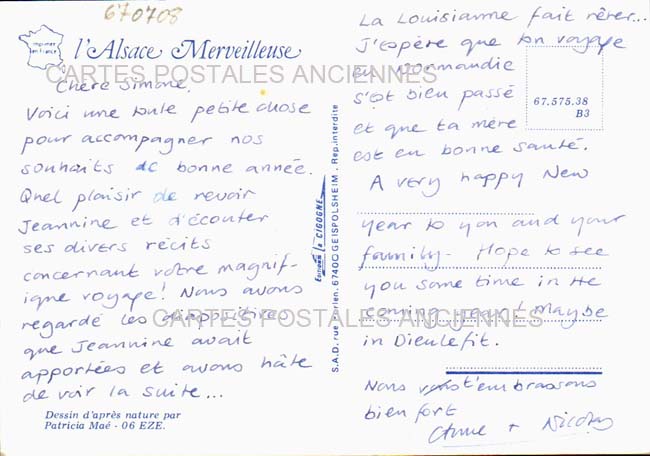 670708
imprimé
en France
l'Alsace Merveilleuse
CARTES POSTALES ANCIENNES
Chère Simone,
Voici une toute petite chose
pour accompagner nos
souhaits de bonne année.
Quel plaisir de revoir
Jeannine et d'écouter
ses divers récits
concernant votre magnif-
ique voyage! Nous avons
regardé les diapositives
CARTES POSTALES ANCIENNES
que Jeannine avait
apportées et avons hâte
de voir la suite...
Dessin d'après nature par
Patricia Maé - 06 EZE.
Editions la CIGOGNE
S.A.D. rue 67400 GEISPOLSHEIM. Rep. interdite
La Louisianne fait rêver...
J'espère que ton voyage
en Normandie
s'est bien passé
et que ta mère
est en bonne santé.
67.575.38
B3
A very happy New
year to you and your
family. Hope to see
you some time in the
coming year! Maybe
in Dieulefit.
Nous t'embrassons
bien fort
Anne + Nicolas